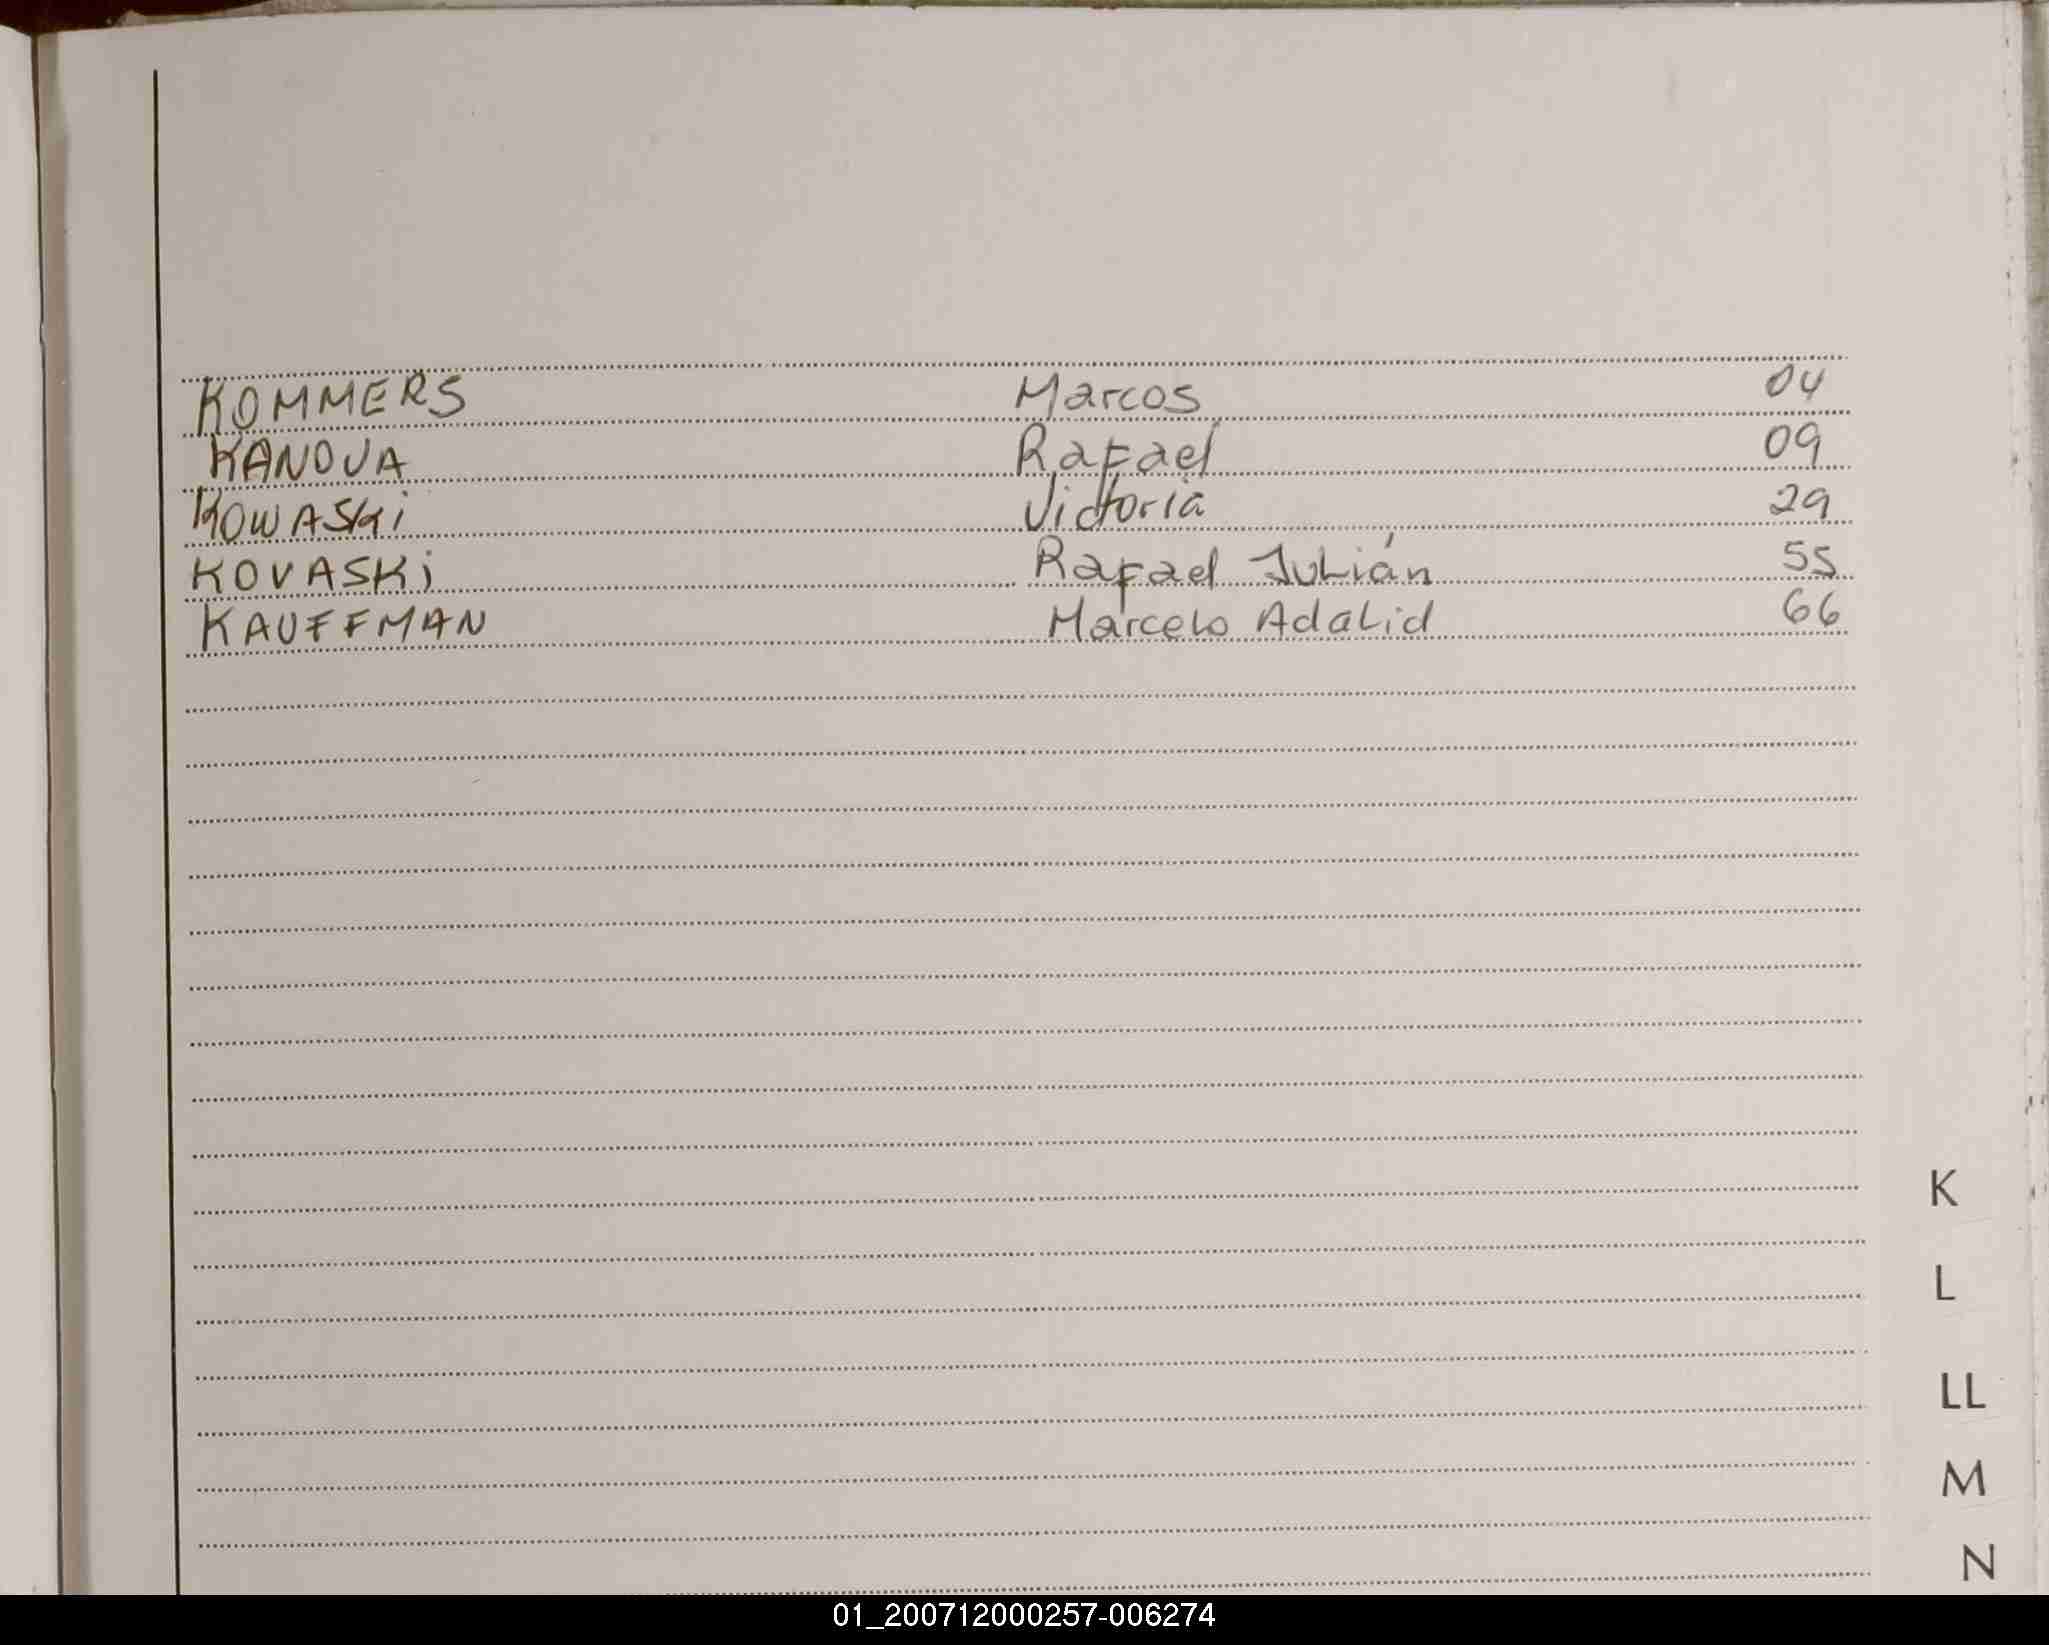 KOMMERS Marcos 04
KANOVA Rafael 09
KOWASKi Victoria 29
KOVASKi Rafael Julián 55
KAUFFMAN Marcelo Adalid 66
K
L
LL
M
N
01_200712000257-006274